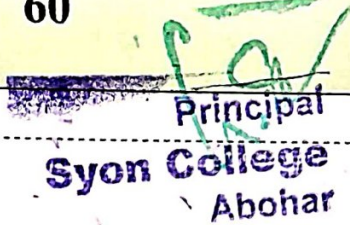 60
Principal
Syon College
Abohar